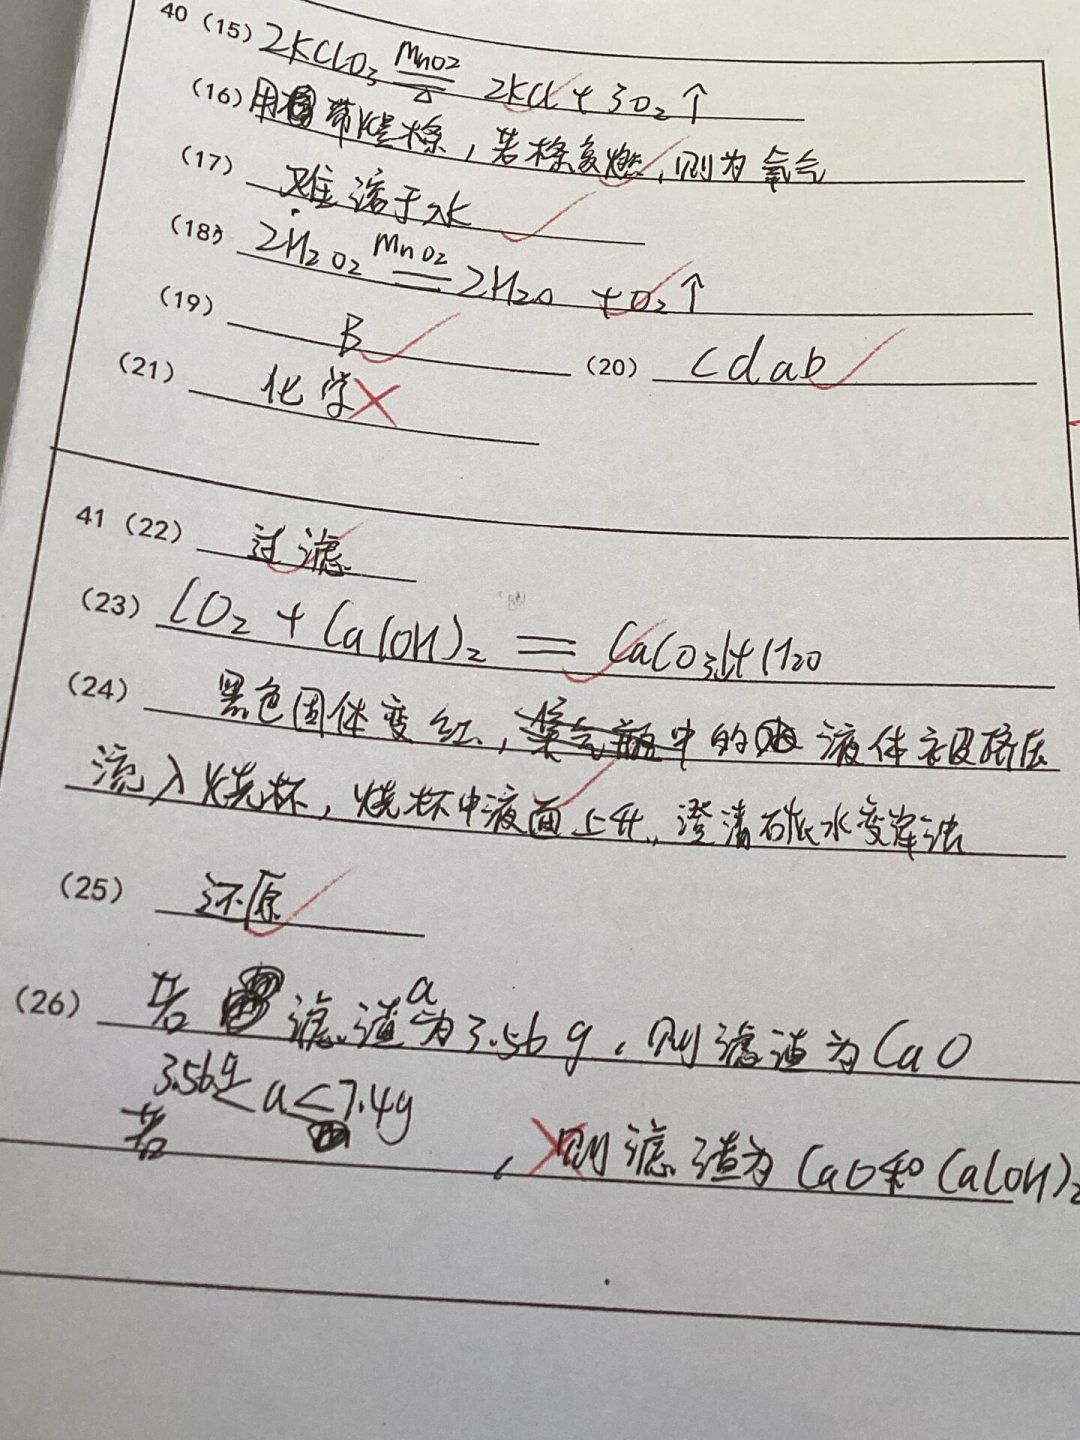 40 (15) 2KClO₃ MnO₂ ══ △ 2KCl + 3O₂↑
(16) 用带火星木条，若木条复燃，则为氧气
(17) 难溶于水
(18) 2H₂O₂ MnO₂ ══ 2H₂O + O₂↑
(19) B (20) cdab
(21) 化学
41 (22) 过滤
(23) CO₂ + Ca(OH)₂ ══ CaCO₃↓+H₂O
(24) 黑色固体变红，集气瓶中的液体被挤压
流入烧杯，烧杯中液面上升，澄清石灰水变浑浊
(25) 还原
(26) 若滤渣a为3.56g，则滤渣为CaO
若3.56g<a<7.4g，则滤渣为CaO和Ca(OH)₂